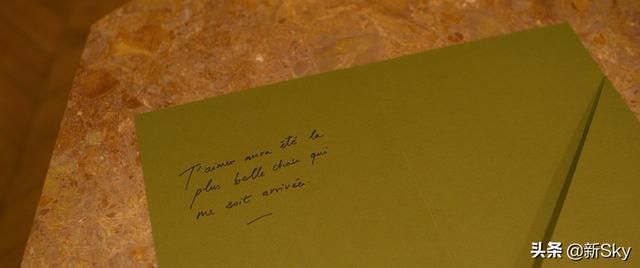 T'aimer aura été la
plus belle chose qui
me soit arrivée.
头条 @新Sky